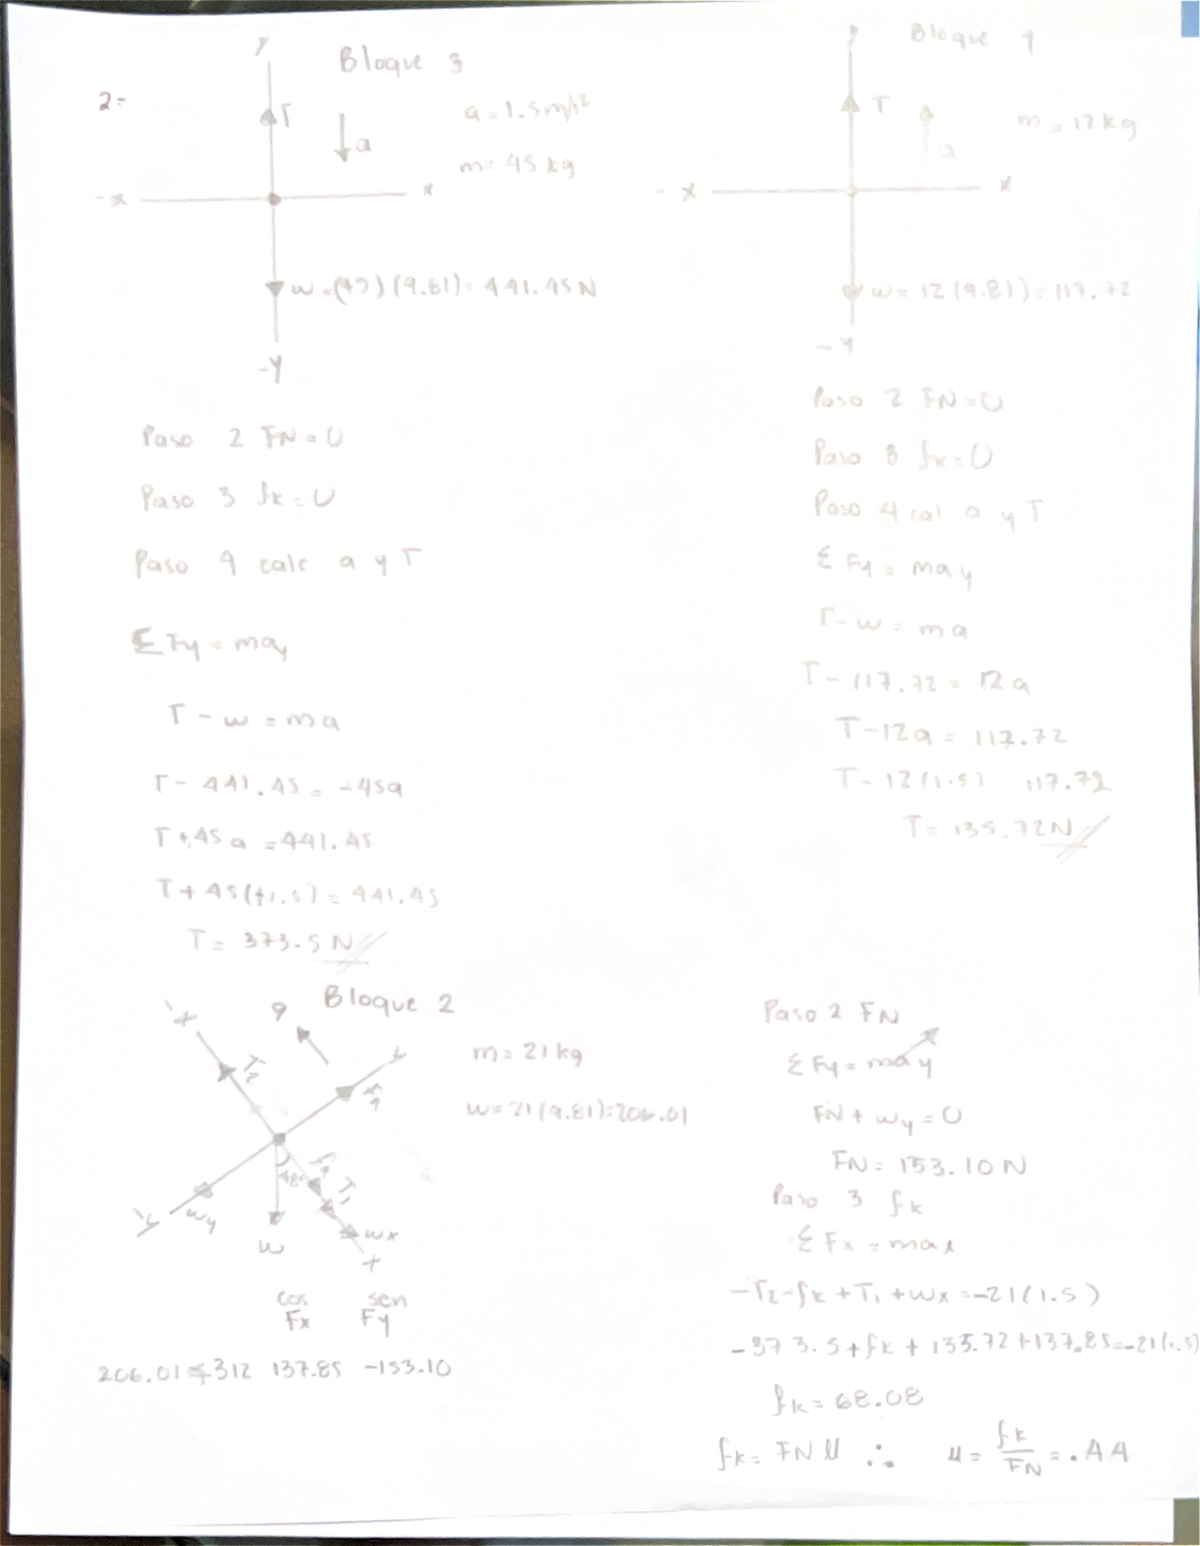 2-
Bloque 3
y
T
a
a = 1.5 m/s2
m = 45 kg
-x
x
w = (45)(9.81) = 441.45 N
-y
Paso 2 FN = 0
Paso 3 fk = 0
Paso 4 calc a y T
Σ Fy = may
T - w = ma
T - 441.45 = -45a
T + 45a = 441.45
T + 45(+1.5) = 441.45
T = 373.5 N
Bloque 1
y
T
a
m = 12 kg
-x
x
w = 12(9.81) = 117.72
-y
Paso 2 FN = 0
Paso 3 fk = 0
Paso 4 cal a y T
Σ Fy = may
T - w = ma
T - 117.72 = 12a
T - 12a = 117.72
T - 12(1.5) 117.72
T = 135.72 N
Bloque 2
a
-x
T2
y
m = 21 kg
w = 21(9.81) = 206.01
48°
fk
T1
-y
wy
w
wx
x
cos sen
Fx Fy
206.01 ∡312 137.85 -153.10
Paso 2 FN
Σ Fy = may
FN + wy = 0
FN = 153.10 N
Paso 3 fk
Σ Fx = max
-T2 - fk + T1 + wx = -21(1.5)
-373.5 + fk + 135.72 + 137.85 = -21(1.5)
fk = 68.08
fk = FN μ ∴ μ = fk/FN = .44